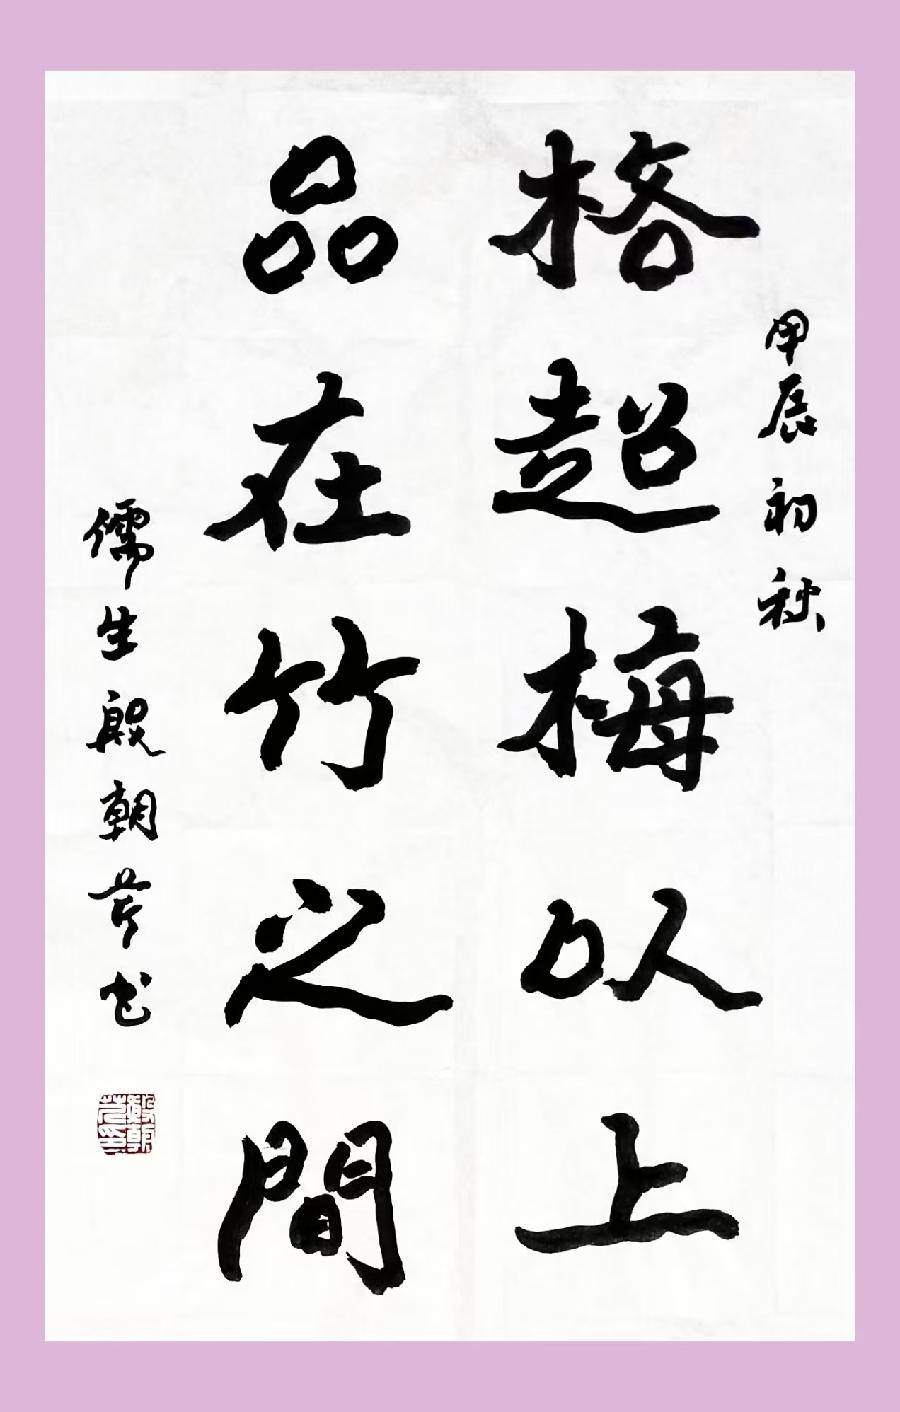 甲辰初秋
格超梅以上
品在竹之間
儒生殷朝书